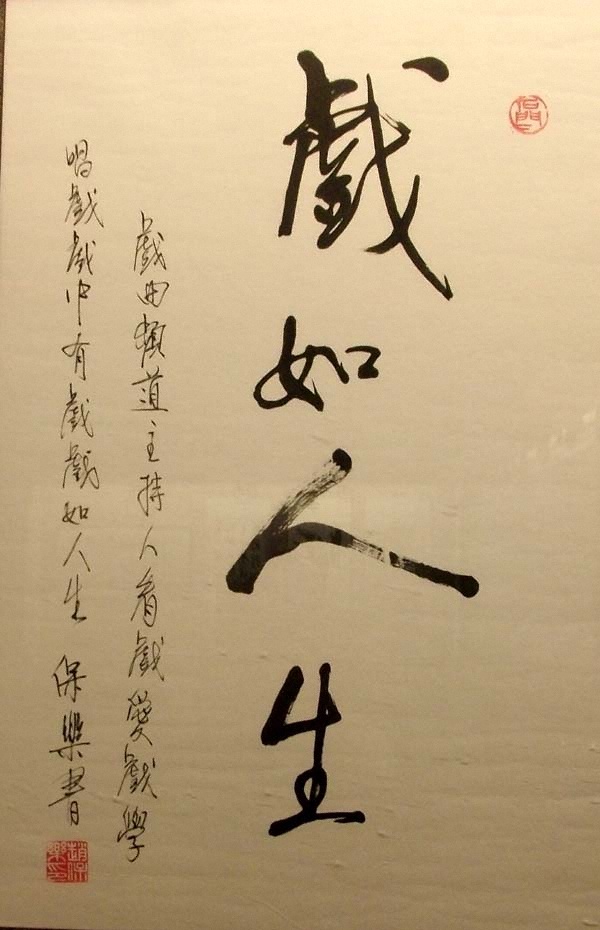 戲如人生
戲曲頻道主持人看戲愛戲學
唱戲戲中有戲戲如人生 保樂書
趙保樂印